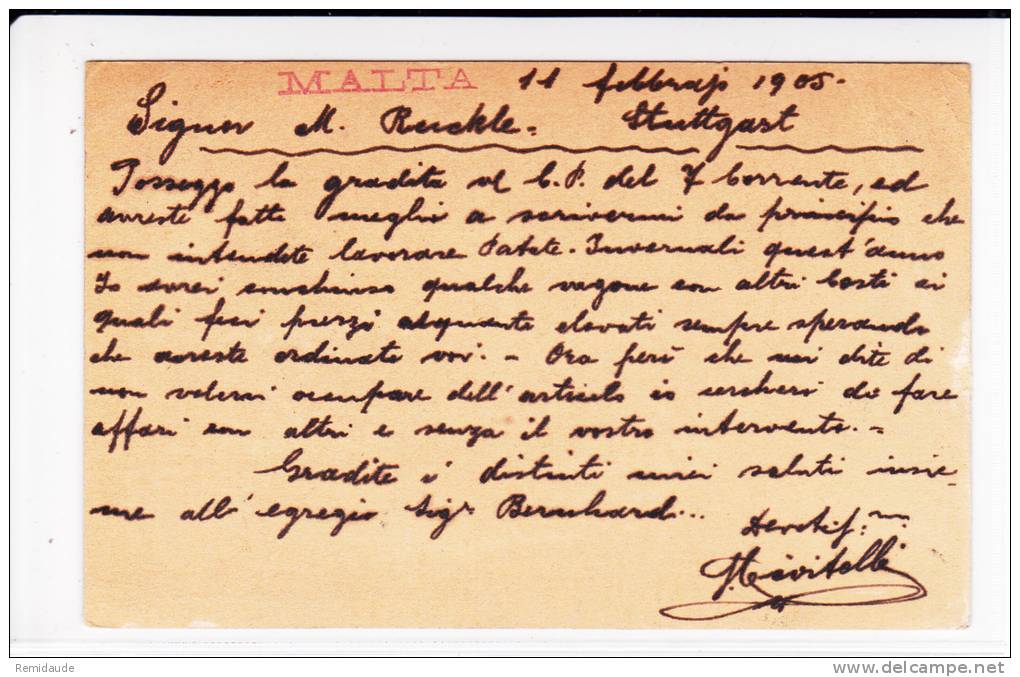 MALTA 11 febbrajo 1905.
Signor M. Ruckle. Stuttgart
Posseggo la gradita C.P. del 7 Corrente, ed
avreste fatto meglio a scrivermi da principio che
non intendete lavorare Patate. Invernali quest'anno
Io avrei conchiuso qualche vagone con altri Costi ai
quali feci prezzi alquanto elevati sempre sperando
che avreste ordinato voi. - Ora però che mi dite di
non volervi occupare dell'articolo io cercherò da fare
affari con altri e senza il vostro intervento. =
Gradite i distinti miei saluti insie-
me all'egregio Sigr. Bernhard...
Remidaude
www.delcampe.net